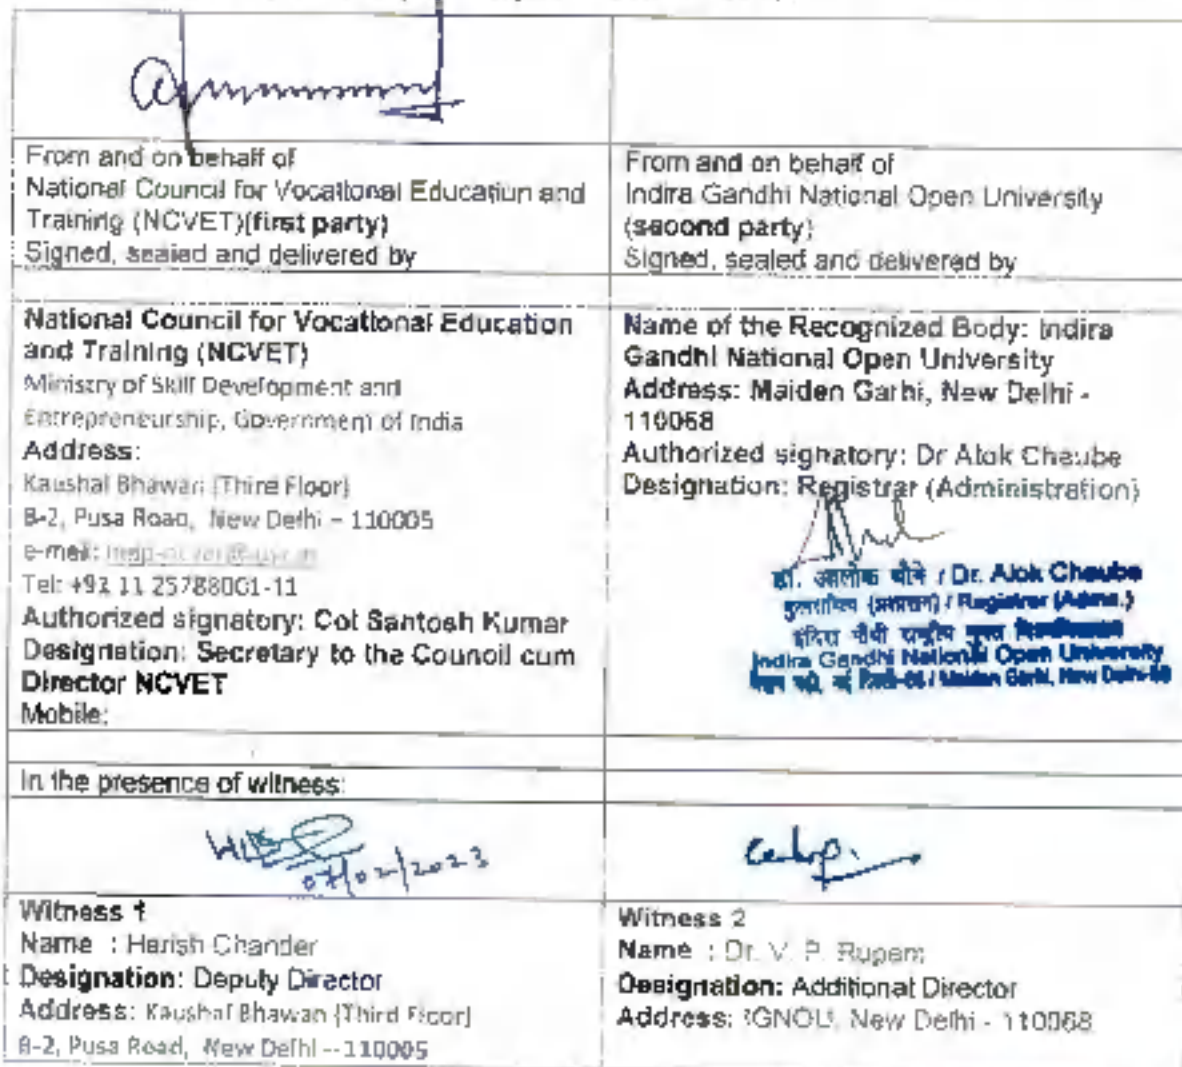 From and on behalf of
National Council for Vocational Education and
Training (NCVET)(first party)
Signed, sealed and delivered by
From and on behalf of
Indira Gandhi National Open University
(second party)
Signed, sealed and delivered by
National Council for Vocational Education
and Training (NCVET)
Ministry of Skill Development and
Entrepreneurship, Government of India
Address:
Kaushal Bhawan (Third Floor)
B-2, Pusa Road, New Delhi – 110005
e-mail:
Tel: +91 11 25788001-11
Authorized signatory: Col Santosh Kumar
Designation: Secretary to the Council cum
Director NCVET
Mobile:
Name of the Recognized Body: Indira
Gandhi National Open University
Address: Maiden Garhi, New Delhi -
110068
Authorized signatory: Dr Alok Chaube
Designation: Registrar (Administration)
डॉ. आलोक चौबे / Dr. Alok Chaube
कुलसचिव (प्रशासन) / Registrar (Admn.)
इंदिरा गाँधी राष्ट्रीय मुक्त विश्वविद्यालय
Indira Gandhi National Open University
मैदान गढ़ी, नई दिल्ली-68 / Maidan Garhi, New Delhi-68
In the presence of witness:
07/02/2023
Witness 1
Name : Harish Chander
Designation: Deputy Director
Address: Kaushal Bhawan (Third Floor)
B-2, Pusa Road, New Delhi -- 110005
Witness 2
Name : Dr. V. P. Rupam
Designation: Additional Director
Address: IGNOU, New Delhi - 110068